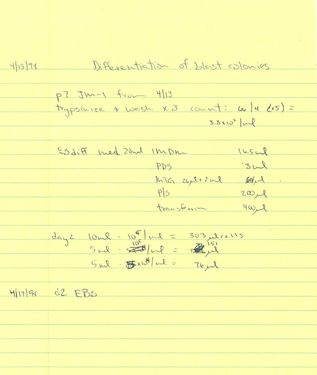 4/15/98 Differentiation of blast colonies
p7 JM-1 from 4/13
trypsinize + wash x 3 count: 66/4 (x5) =
3.3x10⁶/ml
ES diff med 20ml IMDM 16.5ml
PDS 3ml
MTG
P/S 200ul
transferrin 40ul
day 2 10ml - 10⁵/ml = 303ul cells
5ml - /ml = 151
5ml - /ml = 76ul
4/17/98 d2 EBS